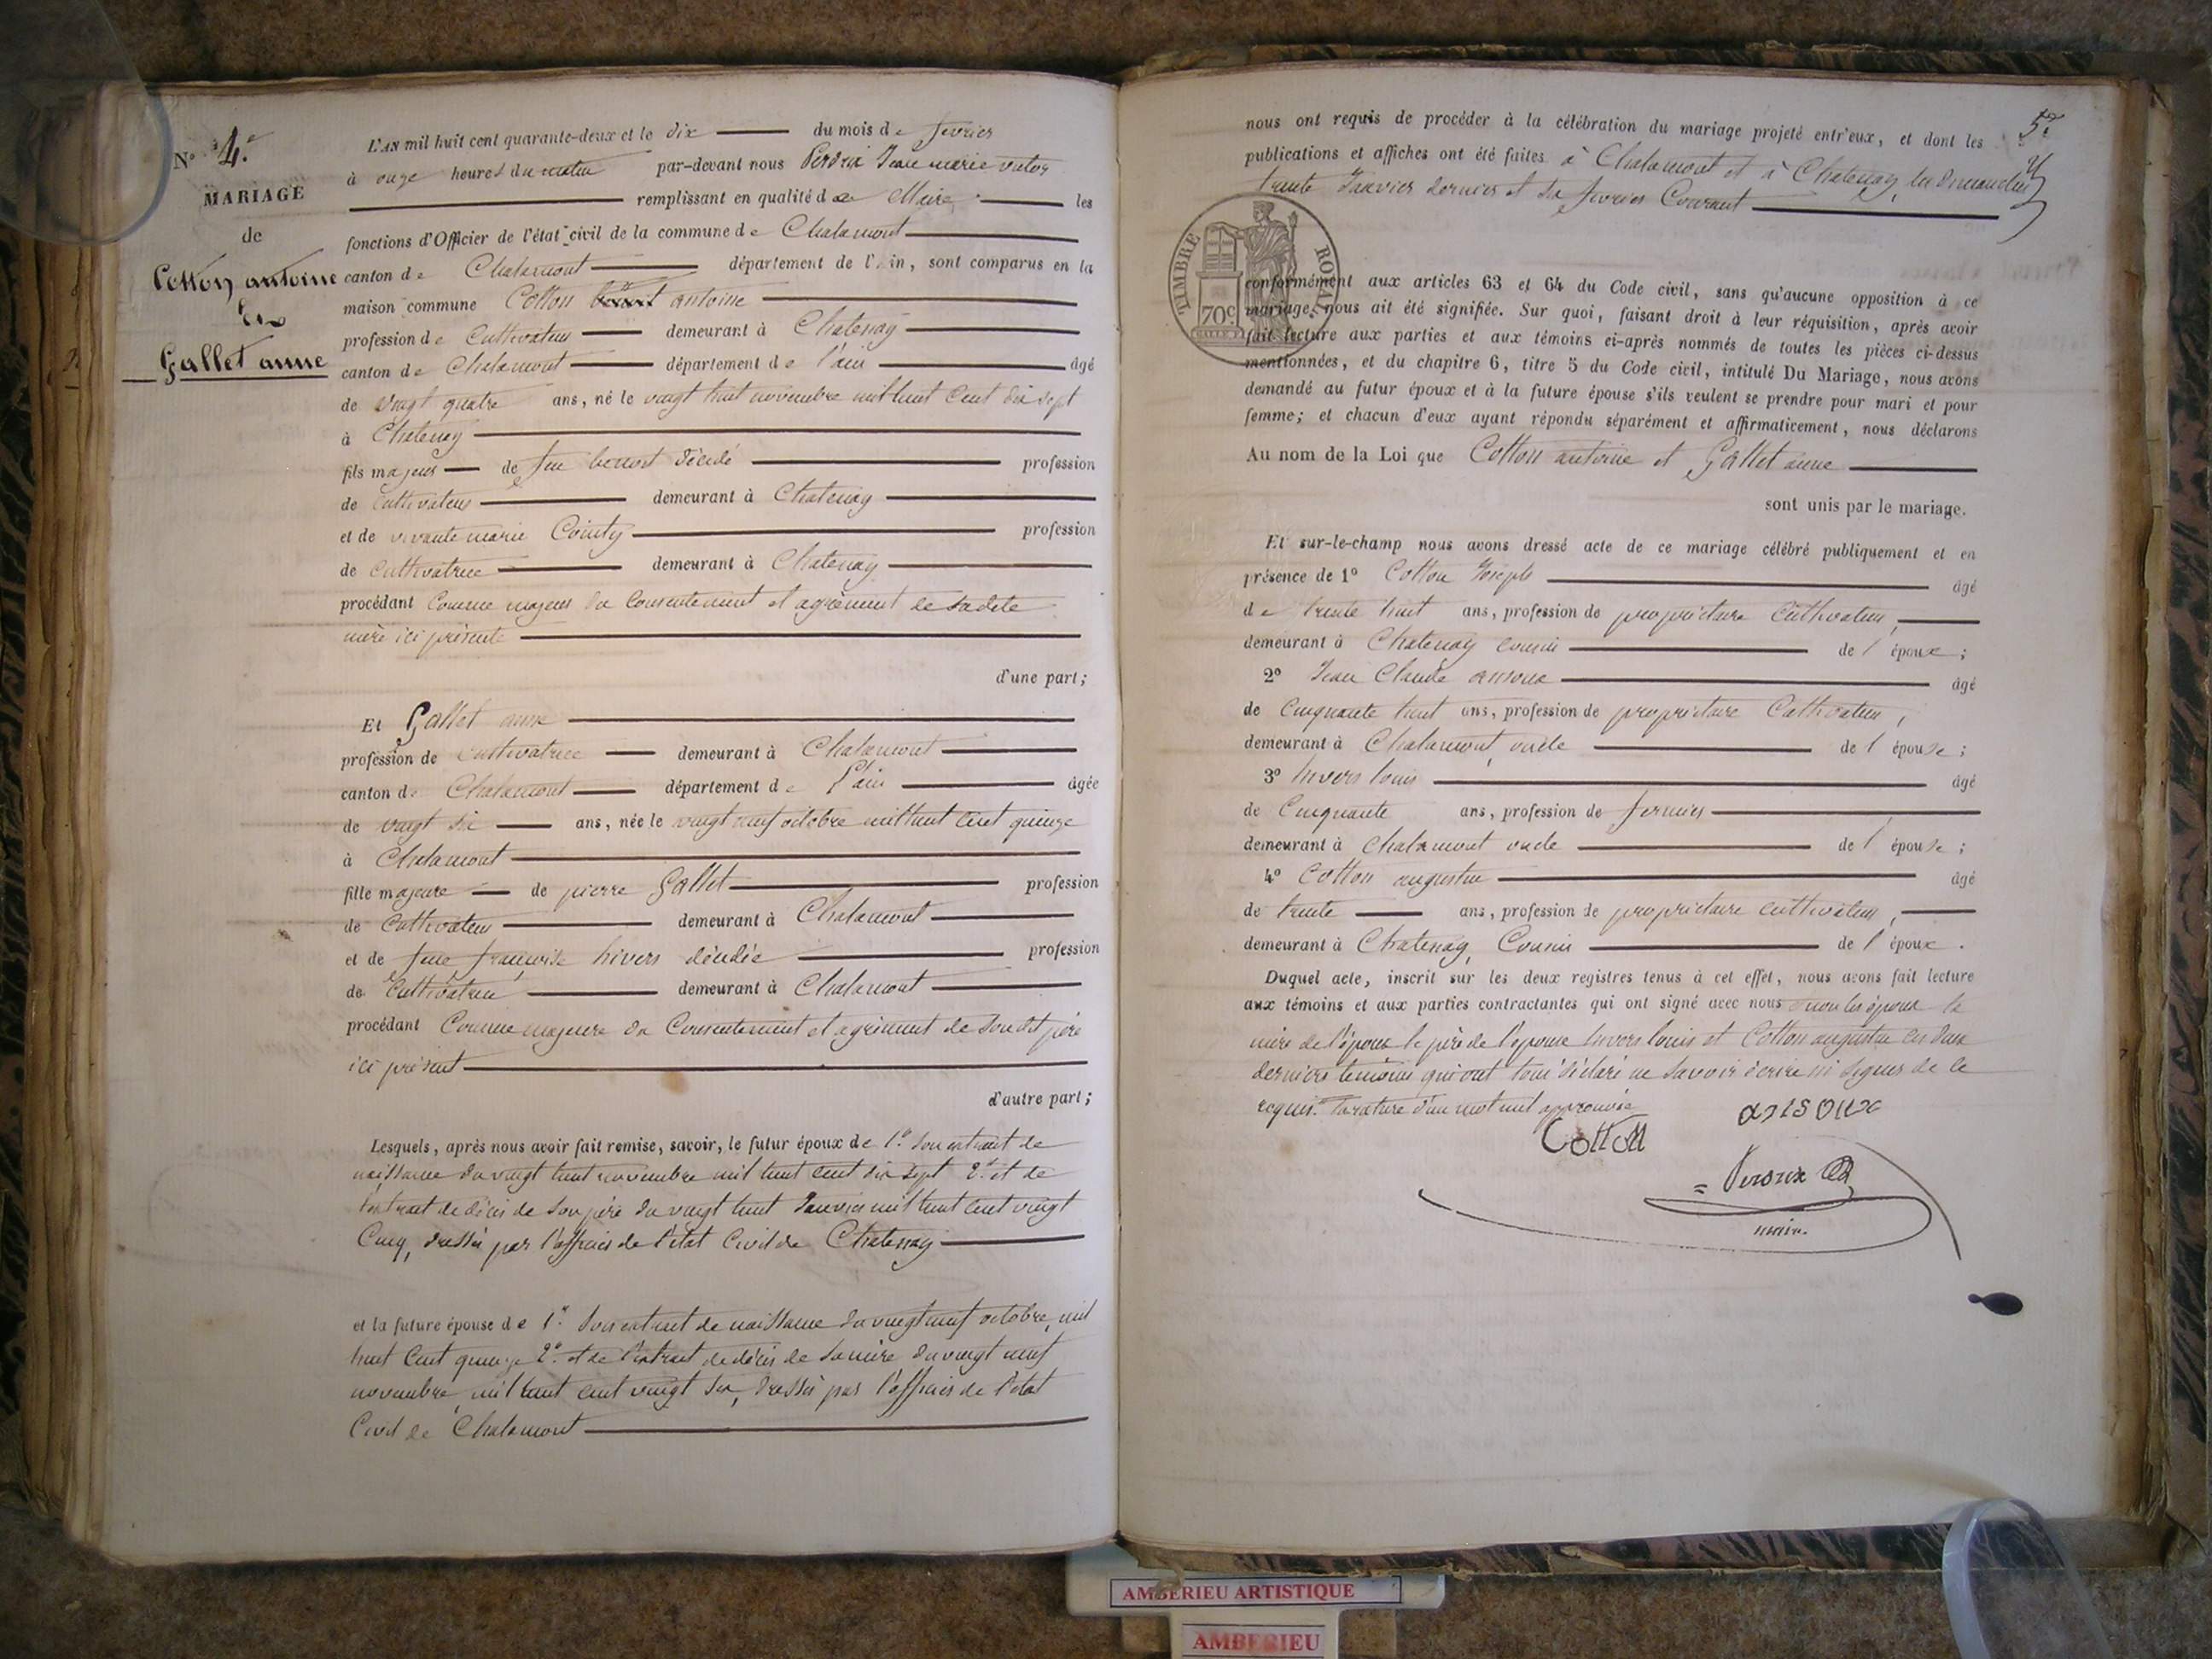 N° 4.e
MARIAGE
de
Cotton antoine
Et
Gallet anne
L'AN mil huit cent quarante-deux et le dix du mois de fevrier
à onze heures du matin par-devant nous Perdrix Jean marie victor
remplissant en qualité de Maire les
fonctions d'Officier de l'état civil de la commune de Chalamont
canton de Chalamont département de l'Ain, sont comparus en la
maison commune Cotton antoine
profession de Cultivateur demeurant à Chatenay
canton de Chalamont département de l'ain âgé
de vingt quatre ans, né le vingt huit novembre mil huit Cent dix sept
à Chatenay
fils majeur de feu benoit décédé profession
de Cultivateur demeurant à Chatenay
et de vivante marie Cointy profession
de Cultivatrice demeurant à Chatenay
procédant Comme majeur du Consentement et agrément de sadite
mère ici présente
d'une part;
Et Gallet anne
profession de Cultivatrice demeurant à Chalamont
canton de Chalamont département de l'ain âgée
de vingt six ans, née le vingt neuf octobre mil huit Cent quinze
à Chalamont
fille majeure de pierre Gallet profession
de Cultivateur demeurant à Chalamont
et de feue françoise hivers décédée profession
de Cultivatrice demeurant à Chalamont
procédant Comme majeure du Consentement et agrément de son dit père
ici présent
d'autre part;
Lesquels, après nous avoir fait remise, savoir, le futur époux de 1.° son extrait de
naissance du vingt huit novembre mil huit cent dix sept 2.° et de
l'extrait de décès de son père du vingt huit Janvier mil huit Cent vingt
Cinq, dressés par l'officier de l'état Civil de Chatenay
et la future épouse de 1.° Son extrait de naissance du vingt neuf octobre, mil
huit Cent quinze 2.° et de l'extrait de décès de sa mère du vingt neuf
novembre, mil huit cent vingt six, dressés par l'officier de l'état
Civil de Chalamont
5.e
nous ont requis de procéder à la célébration du mariage projeté entr'eux, et dont les
publications et affiches ont été faites à Chalamont et à Chatenay, les dimanches
trente Janvier dernier et six fevrier Courant
TIMBRE ROYAL
70c
conformément aux articles 63 et 64 du Code civil, sans qu'aucune opposition à ce
mariage nous ait été signifiée. Sur quoi, faisant droit à leur réquisition, après avoir
fait lecture aux parties et aux témoins ci-après nommés de toutes les pièces ci-dessus
mentionnées, et du chapitre 6, titre 5 du Code civil, intitulé Du Mariage, nous avons
demandé au futur époux et à la future épouse s'ils veulent se prendre pour mari et pour
femme; et chacun d'eux ayant répondu séparément et affirmativement, nous déclarons
Au nom de la Loi que Cotton antoine et Gallet anne
sont unis par le mariage.
Et sur-le-champ nous avons dressé acte de ce mariage célébré publiquement et en
présence de 1° Cotton Joseph âgé
de trente huit ans, profession de propriétaire Cultivateur,
demeurant à Chatenay cousin de l'époux;
2° Jean Claude ansoux âgé
de Cinquante huit ans, profession de propriétaire Cultivateur,
demeurant à Chalamont, oncle de l'épouse;
3° hivers louis âgé
de Cinquante ans, profession de fermier
demeurant à Chalamont oncle de l'épouse;
4° Cotton augustin âgé
de trente ans, profession de propriétaire cultivateur,
demeurant à Chatenay, Cousin de l'époux.
Duquel acte, inscrit sur les deux registres tenus à cet effet, nous avons fait lecture
aux témoins et aux parties contractantes qui ont signé avec nous non les époux la
mère de l'époux le père de l'épouse hivers louis et Cotton augustin ces deux
derniers témoins qui ont tous déclaré ne savoir écrire ni signer de ce
requis. la rature d'un mot nul approuvée
Cotton
ansoux
Perdrix
maire.
AMBERIEU ARTISTIQUE
AMBERIEU